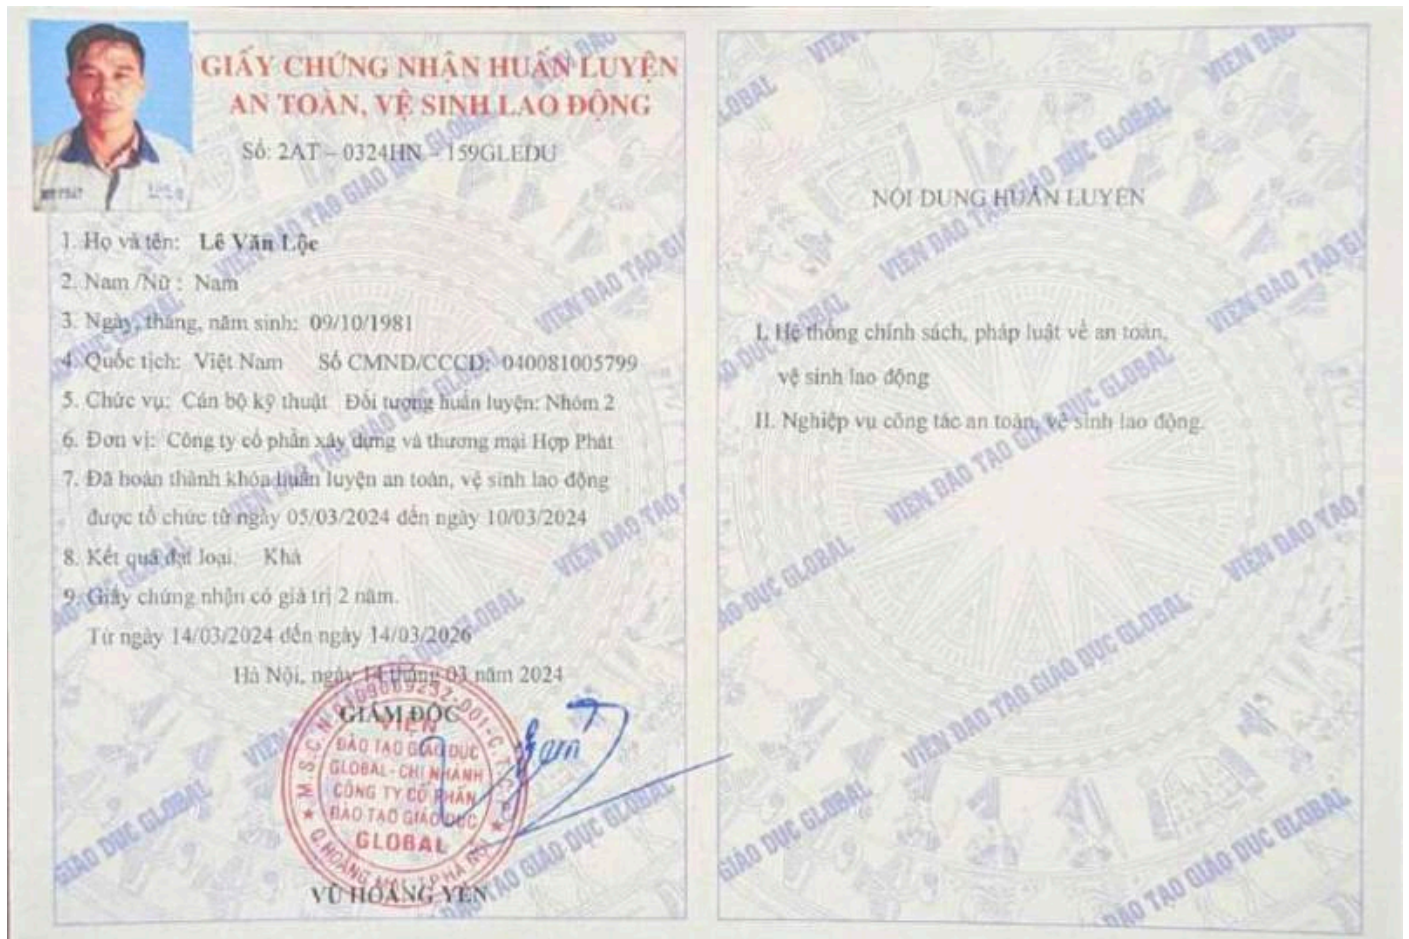 GIẤY CHỨNG NHẬN HUẤN LUYỆN
AN TOÀN, VỆ SINH LAO ĐỘNG
Số: 2AT – 0324HN – 159GLEDU
1. Họ và tên: Lê Văn Lộc
2. Nam /Nữ : Nam
3. Ngày, tháng, năm sinh: 09/10/1981
4. Quốc tịch: Việt Nam Số CMND/CCCD: 040081005799
5. Chức vụ: Cán bộ kỹ thuật Đối tượng huấn luyện: Nhóm 2
6. Đơn vị: Công ty cổ phần xây dựng và thương mại Hợp Phát
7. Đã hoàn thành khóa huấn luyện an toàn, vệ sinh lao động
được tổ chức từ ngày 05/03/2024 đến ngày 10/03/2024
8. Kết quả đạt loại. Khá
9. Giấy chứng nhận có giá trị 2 năm.
Từ ngày 14/03/2024 đến ngày 14/03/2026
Hà Nội, ngày 14 tháng 03 năm 2024
GIÁM ĐỐC
VIỆN
ĐÀO TẠO GIÁO DỤC
GLOBAL - CHI NHÁNH
CÔNG TY CỔ PHẦN
ĐÀO TẠO GIÁO DỤC
GLOBAL
VŨ HOÀNG YẾN
NỘI DUNG HUẤN LUYỆN
I. Hệ thống chính sách, pháp luật về an toàn,
vệ sinh lao động
II. Nghiệp vụ công tác an toàn, vệ sinh lao động.
VIỆN ĐÀO TẠO GIÁO DỤC GLOBAL